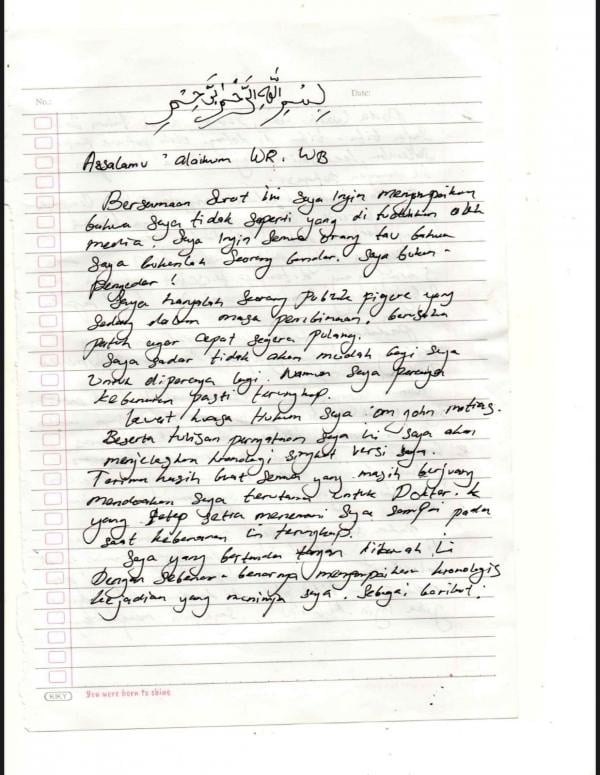 No.:
Date:
بِسْمِ اللَّهِ الرَّحْمَٰنِ الرَّحِيمِ
Assalamu 'alaikum WR. WB
Bersamaan Surat ini saya ingin menyampaikan
bahwa saya tidak seperti yang di tuduhkan oleh
media. Saya ingin semua orang tau bahwa
saya bukanlah seorang bandar. Saya bukan-
pengedar!
Saya hanyalah seorang publik figure yang
sedang dalam masa pembinaan. berusaha
patuh agar cepat segera pulang.
Saya sadar tidak akan mudah bagi saya
untuk dipercaya lagi. Namun saya percaya
kebenaran pasti terungkap.
Lewat kuasa Hukum saya om john matias.
Beserta tulisan pernyataan saya ini saya akan
menjelaskan kronologi singkat versi saya.
Terima kasih buat semua yang masih berjuang
mendoakan saya terutama untuk Dokter. K
yang tetap setia menemani saya sampai pada
saat kebenaran ini terungkap.
Saya yang bertanda tangan dibawah ini
Dengan sebenar-benarnya menyampaikan kronologis
kejadian yang menimpa saya. Sebagai berikut:
KKY
You were born to shine